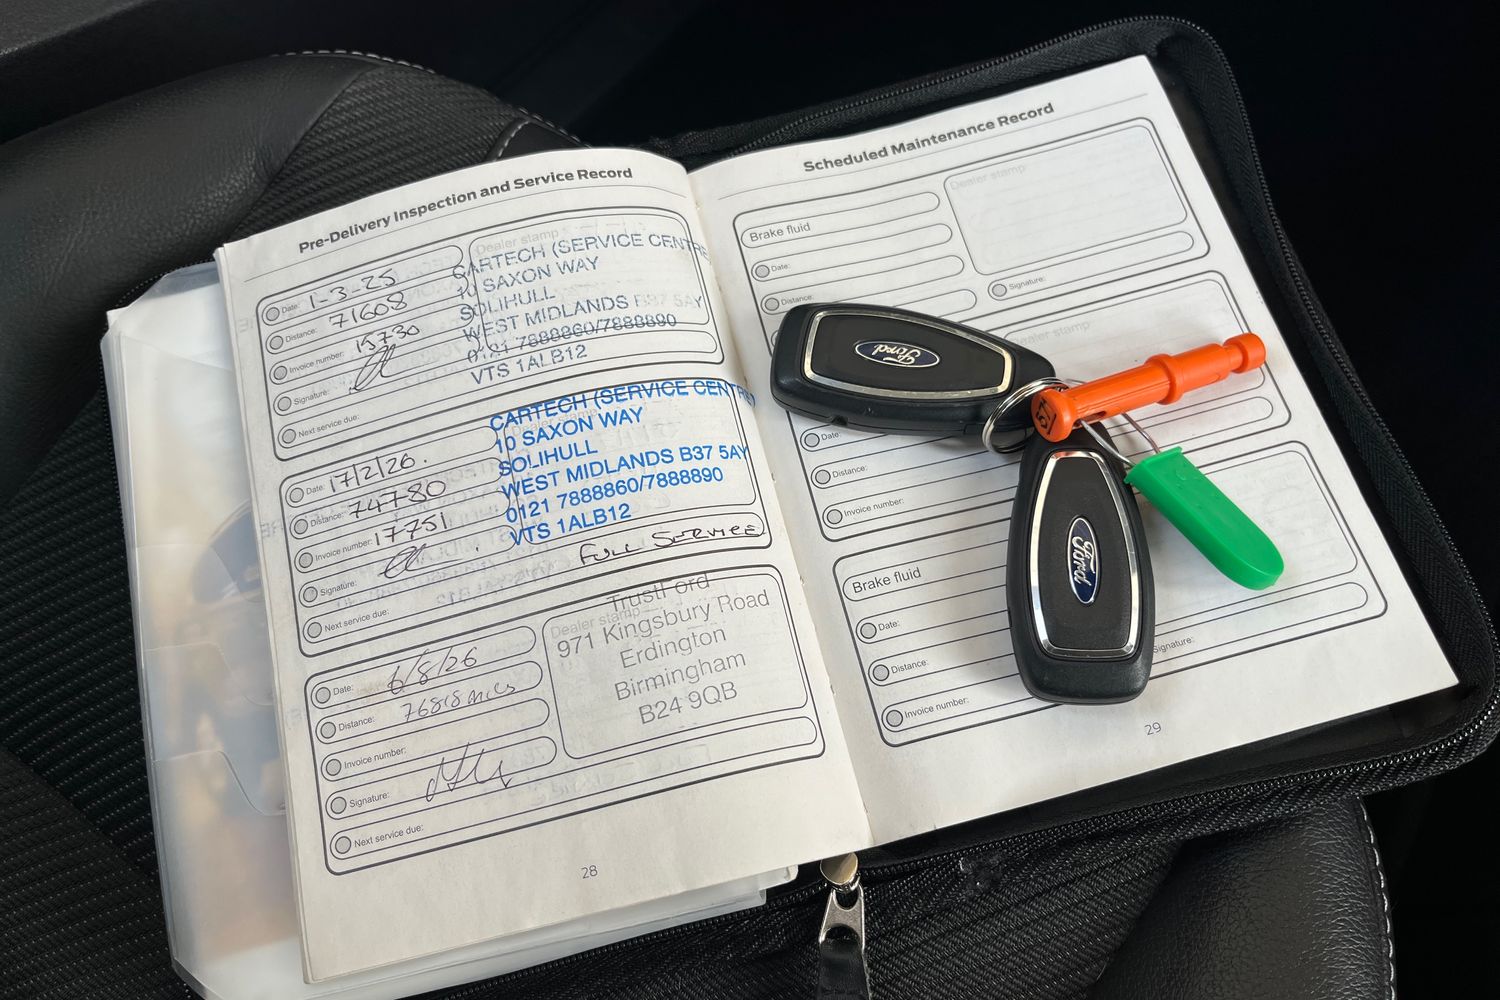 Pre-Delivery Inspection and Service Record
Dealer stamp
Date: 1-3-25
Distance: 71608
Invoice number: 15730
Signature:
Next service due:
CARTECH (SERVICE CENTRE
10 SAXON WAY
SOLIHULL
WEST MIDLANDS B37 5AY
0121 7888860/7888890
VTS 1ALB12
Date: 17/2/26.
Distance: 74780
Invoice number: 17751
Signature:
Next service due:
Dealer stamp
CARTECH (SERVICE CENTRE
10 SAXON WAY
SOLIHULL
WEST MIDLANDS B37 5AY
0121 7888860/7888890
VTS 1ALB12
FULL SERVICE
Date: 6/8/26
Distance: 76818 miles
Invoice number:
Signature:
Next service due:
Dealer stamp
TrustFord
971 Kingsbury Road
Erdington
Birmingham
B24 9QB
28
Scheduled Maintenance Record
Dealer stamp
Brake fluid
Date:
Distance:
Signature:
Dealer stamp
Date:
Distance:
Invoice number:
Brake fluid
Date:
Distance:
Invoice number:
Signature:
29
Ford
Ford